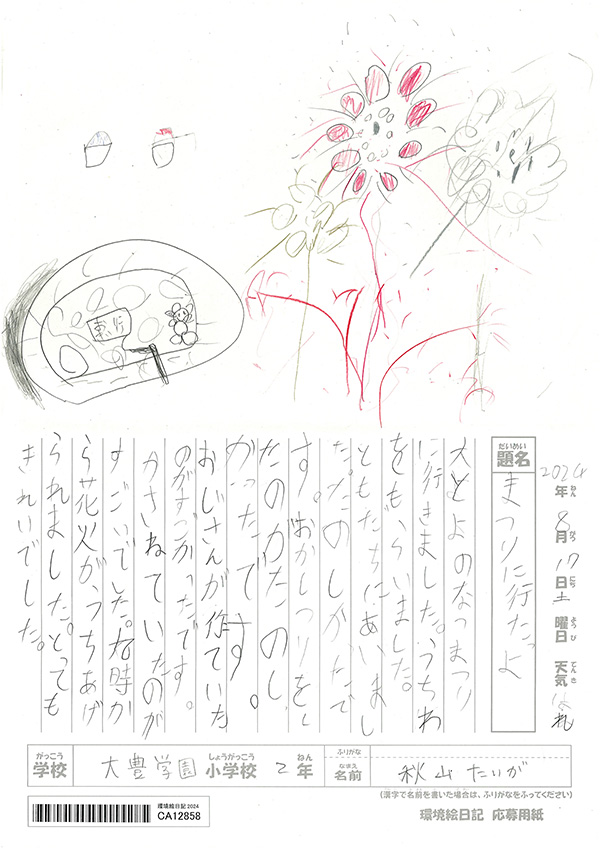 2024年8月17日土曜日 天気はれ
ねん がつ にち ようび てんき
だいめい
題名
まつりに行たっよ
大とよのなつまつり
に行きました。うちわ
をもらいました。
ともだちにあいまし
た。たのしかたで
す。おかしつりをし
たのがたのし
かったです。
おじさんが作ていた
のがすごかったです。
かさいねていたのが
すごいでした。8時か
ら花火がうちあげ
られました。とっても
きれいでした。
がっこう
学校
大豊学園
しょうがっこう
小学校
2
ねん
年
ふりがな
なまえ
名前
秋山たいが
(漢字で名前を書いた場合は、ふりがなをふってください)
環境絵日記2024
CA12858
環境絵日記 応募用紙